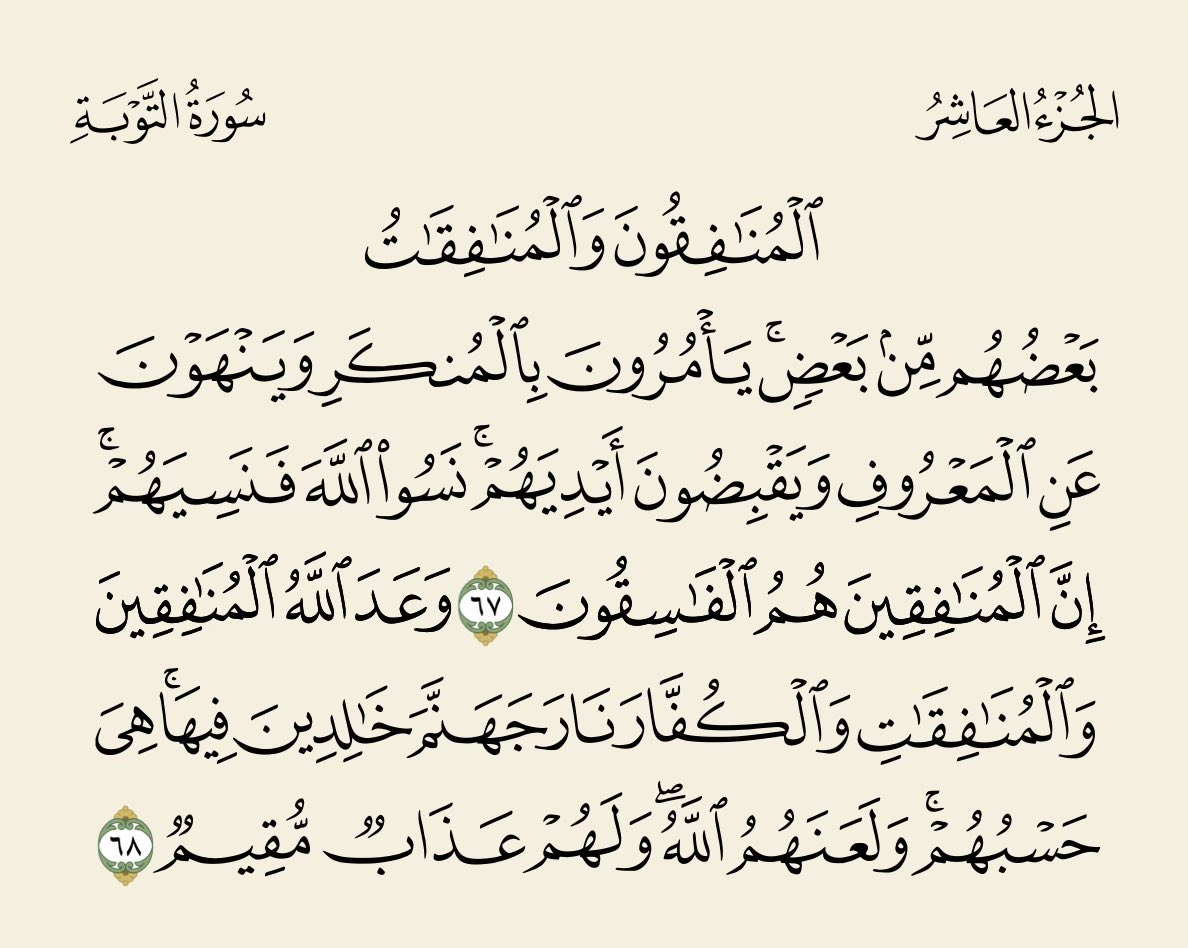 الجُزْءُ العَاشِرُ
سُورَةُ التَّوْبَةِ
ٱلْمُنَـٰفِقُونَ وَٱلْمُنَـٰفِقَـٰتُ
بَعْضُهُم مِّنۢ بَعْضٍۚ يَأْمُرُونَ بِٱلْمُنكَرِ وَيَنْهَوْنَ
عَنِ ٱلْمَعْرُوفِ وَيَقْبِضُونَ أَيْدِيَهُمْۚ نَسُوا۟ ٱللَّهَ فَنَسِيَهُمْۚ
إِنَّ ٱلْمُنَـٰفِقِينَ هُمُ ٱلْفَـٰسِقُونَ ٦٧ وَعَدَ ٱللَّهُ ٱلْمُنَـٰفِقِينَ
وَٱلْمُنَـٰفِقَـٰتِ وَٱلْكُفَّارَ نَارَ جَهَنَّمَ خَـٰلِدِينَ فِيهَاۚ هِىَ
حَسْبُهُمْۚ وَلَعَنَهُمُ ٱللَّهُۖ وَلَهُمْ عَذَابٌ مُّقِيمٌ ٦٨